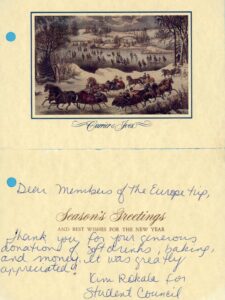 Currier & Ives
Dear Members of the Europe trip,
Season's Greetings
AND BEST WISHES FOR THE NEW YEAR
Thank you for your generous
donations of soft drinks, baking,
and money. It was greatly
appreciated!
Kim for
Student Council